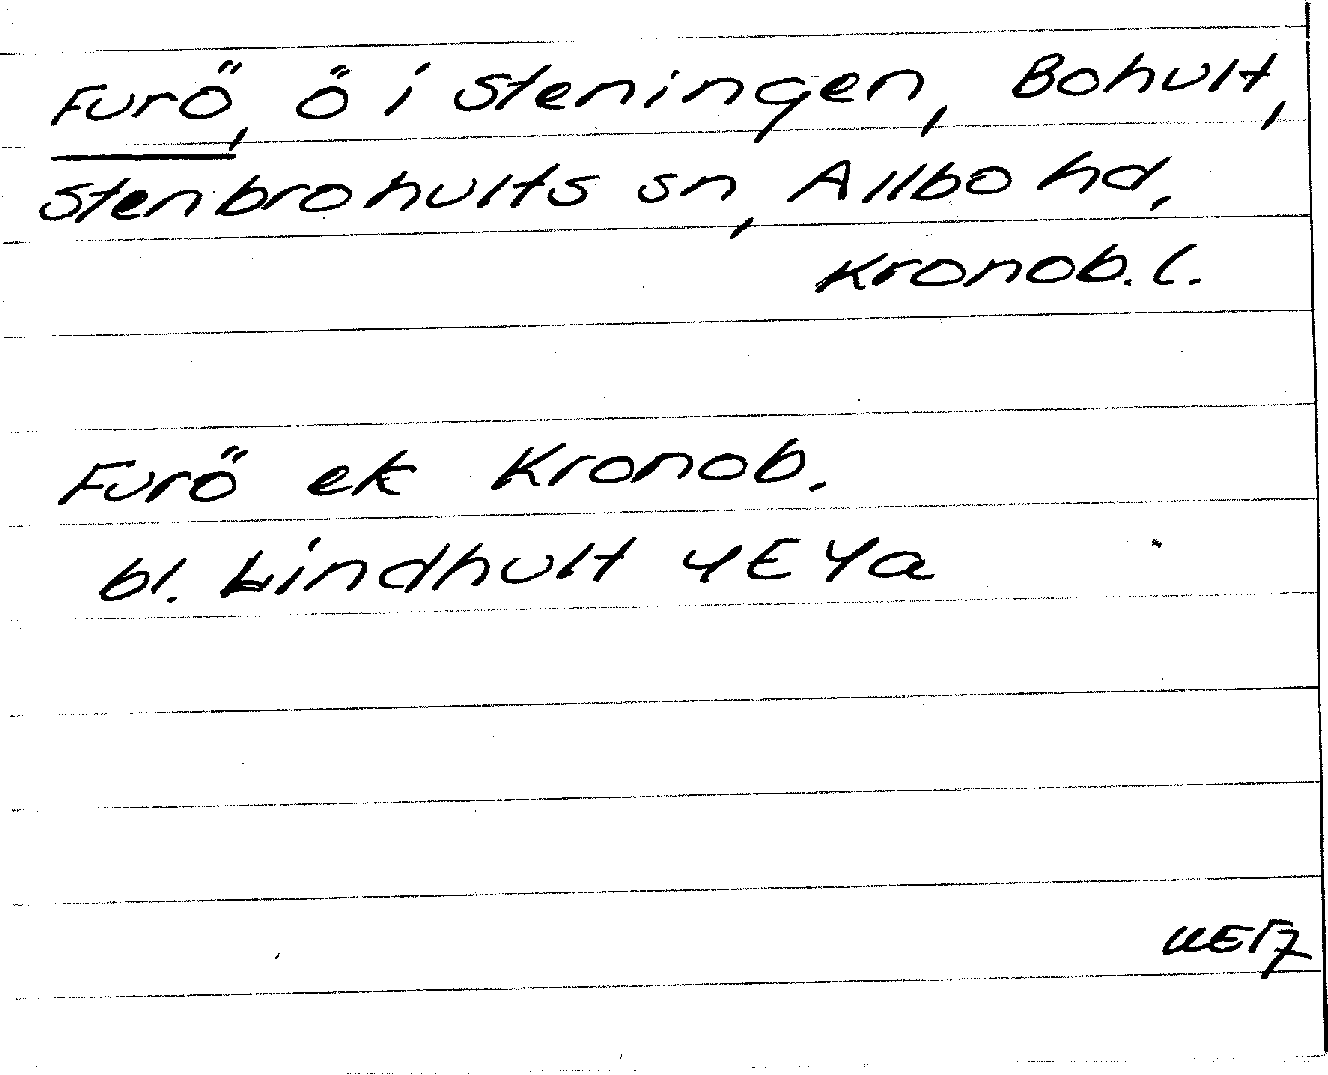 Furö, ö i Steningen, Bohult,
Stenbrohults sn, Allbo hd,
Kronob. l.
Furö ek Kronob.
bl. Lindhult 4E4a